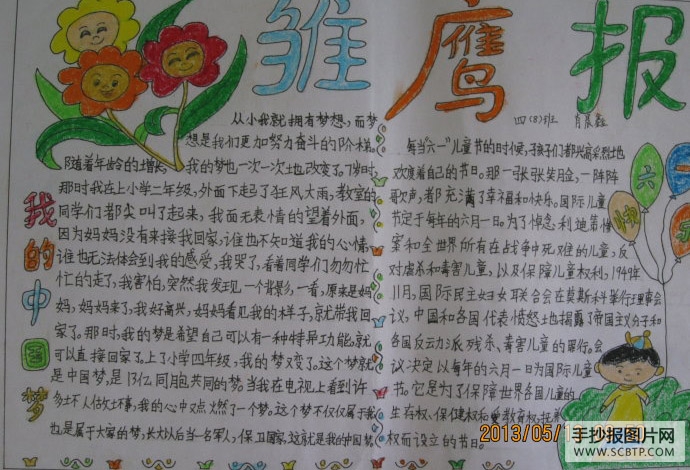 雏鹰报
四(8)班 肖晨鑫
我的中国梦
从小我就拥有梦想,而梦
想是我们更加努力奋斗的阶梯。
随着年龄的增长,我的梦也一次一次地改变了。儿时,
那时我在上小学二年级,外面下起了狂风大雨,教室的
同学们都尖叫了起来,我面无表情的望着外面,
因为妈妈没有来接我回家,谁也不知道我的心情,
谁也无法体会到我的感受,我哭了,看着同学们匆匆忙
忙的走了,我害怕,突然我发现一个背影,一看,原来是妈
妈,妈妈来了,我好高兴,妈妈看见我的样子,就带我回
家了。那时,我的梦是希望自己可以有一种特异功能,就
可以直接回家了。上了小学四年级,我的梦又变了。这个梦就
是中国梦,是13亿同胞共同的梦。当我在电视上看到许
多土不人估欠土不事,我的心中又点火然了一个梦。这个梦不仅仅属于我,
也是属于大家的梦,长大以后当一名军人,保卫国家,这就是我的中国梦
每当六一"儿童节的时候,孩子们都兴高采烈地
欢度着自己的节日。那一张张笑脸,一阵阵
歌声,都充满了幸福和快乐。国际儿童
节定于每年的六月一日。为了悼念利迪策惨
案和全世界所有在战争中死难的儿童,反
对虐杀和毒害儿童,以及保障儿童权利,1949年
11月,国际民主妇女联合会在莫斯科举行理事会
议,中国和各国代表愤怒地揭露了帝国主义分子和
各国反动派残杀、毒害儿童的罪行。会
议决定以每年的六月一日为国际儿童
节。它是为了保障世界各国儿童的
生存权、保健权和受教育权、抚养
权而设立的节日。
六一快乐
2013/05/1
手抄报图片网
WWW.SCBTP.COM